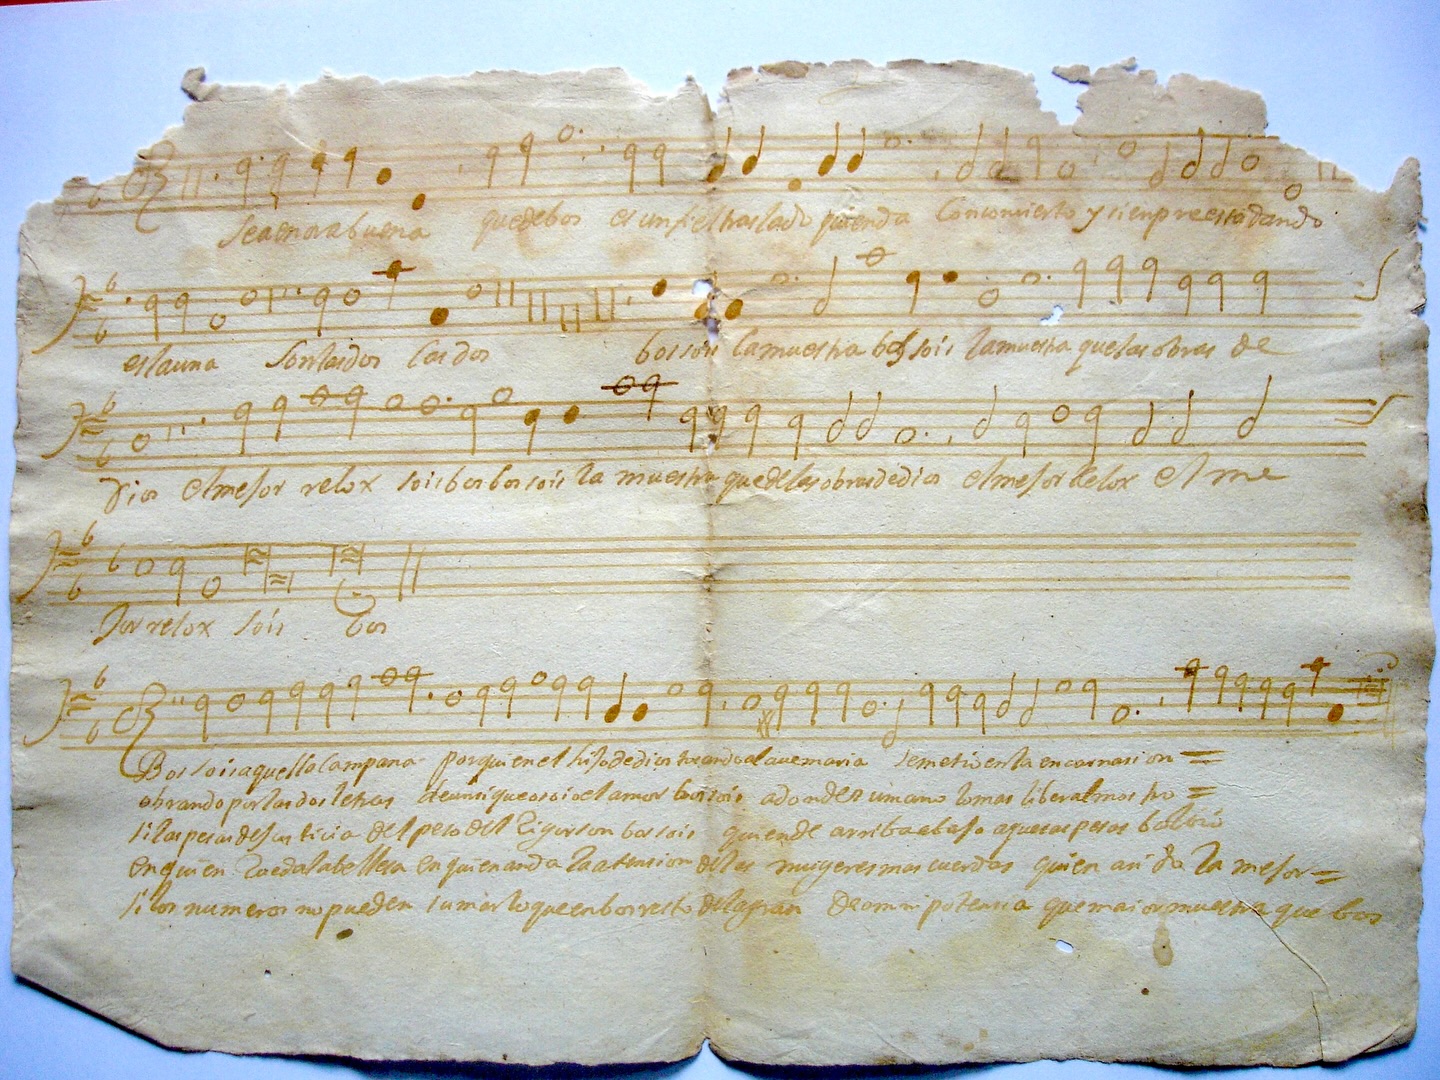 sea enorabuena quedebos es un fiel traslado quienda Conconcierto y sienpre esta dando
es la una Son las dos las dos bos sois la muestra bos sois la muestra que las obras de
Dios el mejor relox sois bos bos sois la muestra que de las obras de dios el mejor relox el me
Jor relox sois bos
Bos sois aquella Campana por quien el hijo de dios tocando al ave maria se metio en la encarnasion =
obrando por las dos letras el amor bos sois adonde umano liberal mostro =
si las pesas de Justicia del peso del Rigor son bos sois quien de arriba abajo aquesas pesas bolbio
en quien la bellesa en quien anda la atension de las mugeres mas cuerdas quien anda la mejor =
si los numeros no pueden sumar lo que en bos resto de la gran de omnipotensia que maior muestra que bos